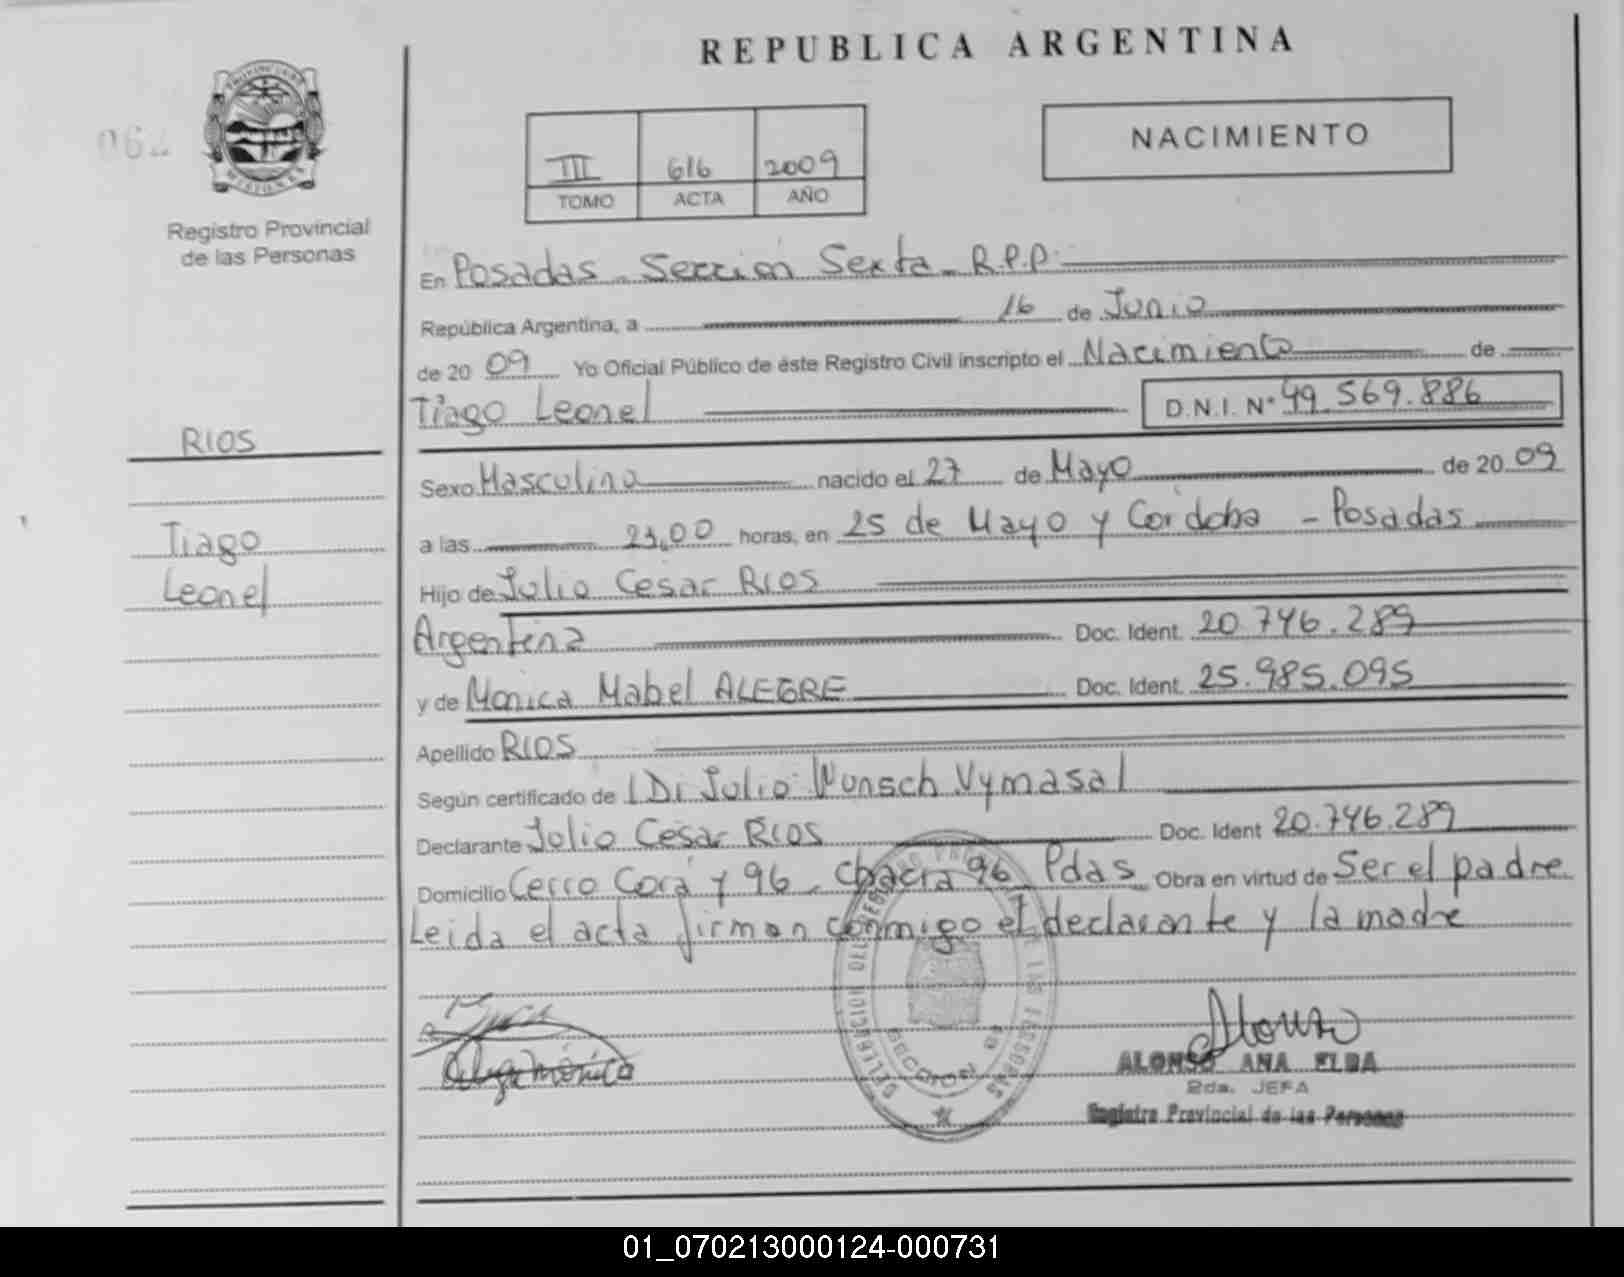 REPUBLICA ARGENTINA
NACIMIENTO
062
III 616 2009
TOMO ACTA AÑO
Registro Provincial
de las Personas
En Posadas - Sección Sexta - R.P.P.
República Argentina, a 16 de Junio
de 2009 Yo Oficial Público de éste Registro Civil inscripto el Nacimiento de
Tiago Leonel D.N.I. Nº 49.569.886
RIOS
Tiago
Leonel
Sexo Masculino nacido el 27 de Mayo de 2009
a las 21,00 horas, en 25 de Mayo y Córdoba - Posadas
Hijo de Julio Cesar RIOS
Argentina Doc. Ident. 20.746.289
y de Monica Mabel ALEGRE Doc. Ident. 25.985.095
Apellido RIOS
Según certificado de Julio Wunsch Vymasal
Declarante Julio Cesar RIOS Doc. Ident 20.746.289
Domicilio Cerro Corá y 96 - chacra 96 Pdas Obra en virtud de Ser el padre
Leida el acta firman conmigo el declarante y la madre
Monica
Alonso
ALONSO ANA ELBA
2da. JEFA
Registro Provincial de las Personas
DELEGACION DEL REGISTRO DE LAS PERSONAS
SECCION 6ª
01_070213000124-000731